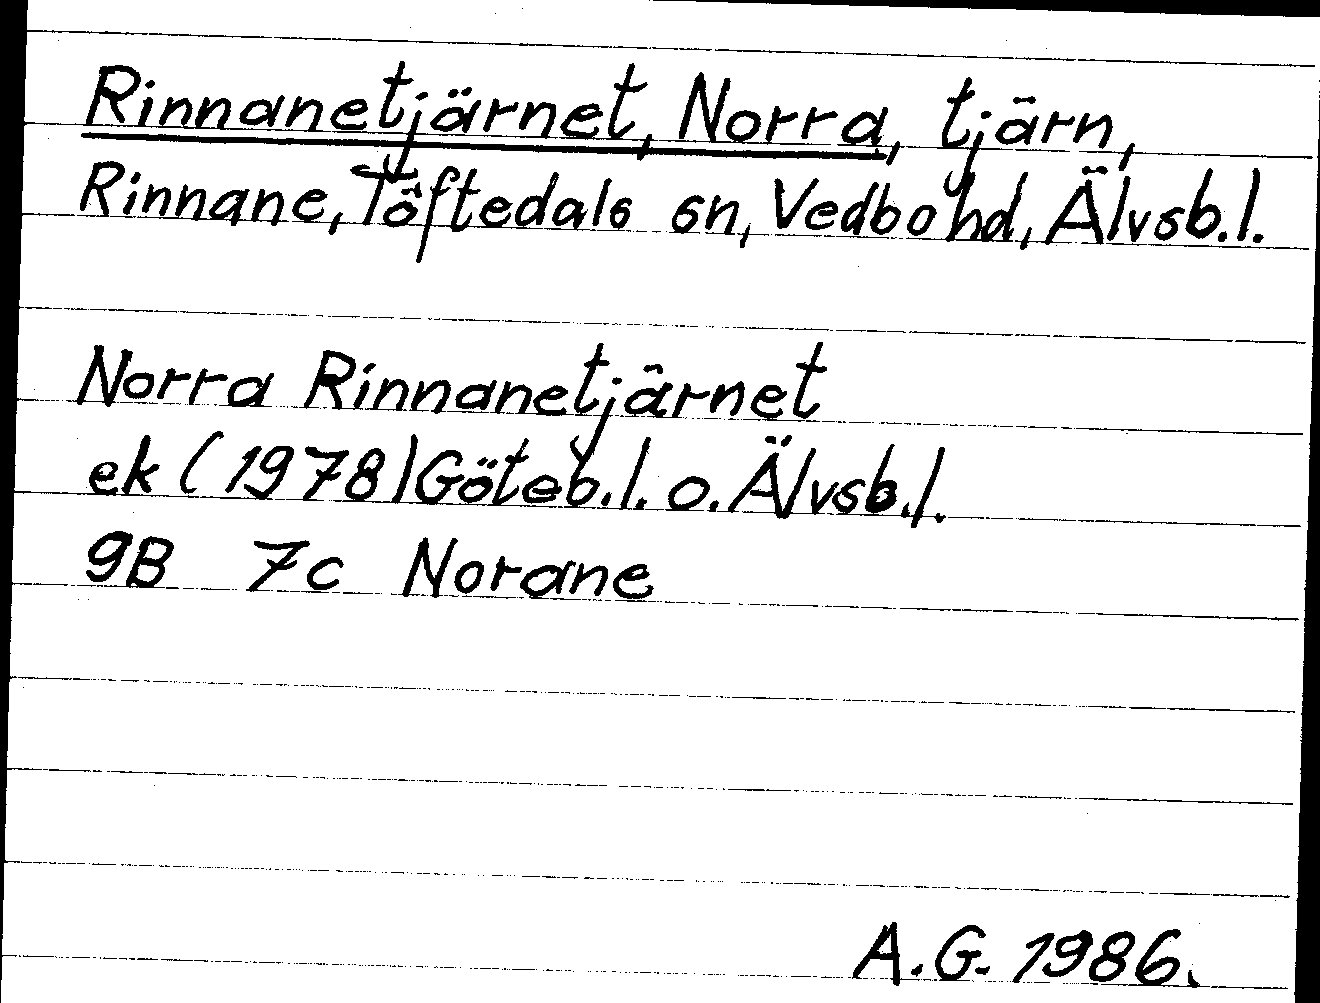 Rinnanetjärnet, Norra, tjärn,
Rinnane, Töftedals sn, Vedbo hd, Älvsb.l.
Norra Rinnanetjärnet
ek (1978) Göteb.l. o. Älvsb.l.
9B 7c Norane
A.G. 1986.